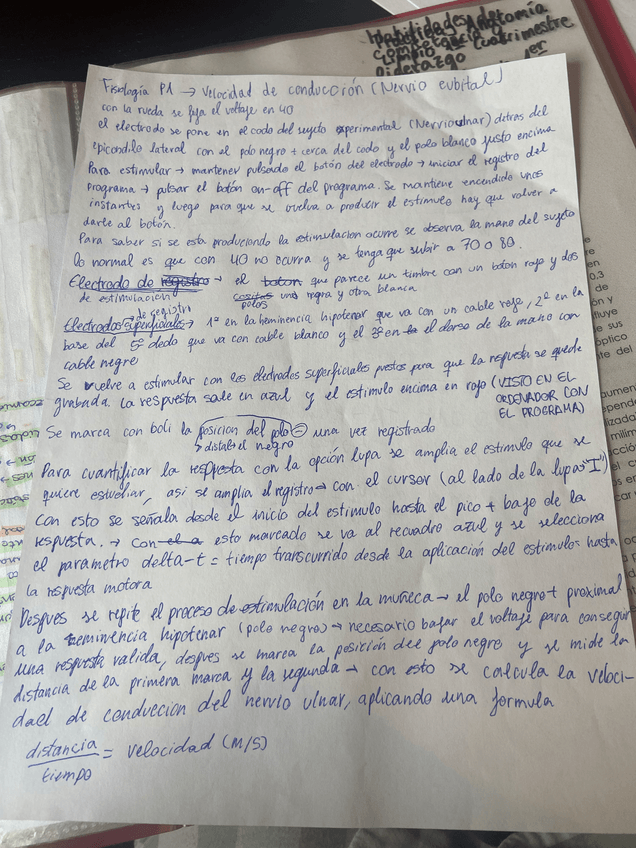 Habilidades de
competencia y
liderazgo
Anatomía
Cuatrimestre
Fisiología P1 → Velocidad de conducción (Nervio cubital)
con la rueda se fija el voltaje en 40
el electrodo se pone en el codo del sujeto experimental (Nervio ulnar) detras del
epicondilo lateral con el polo negro + cerca del codo y el polo blanco justo encima
Para estimular → mantener pulsado el botón del electrodo → iniciar el registro del
programa → pulsar el botón on-off del programa. Se mantiene encendido unos
instantes y luego para que se vuelva a producir el estimulo hay que volver a
darle al botón.
Para saber si se esta produciendo la estimulacion ocurre se observa la mano del sujeto
lo normal es que con 40 no ocurra y se tenga que subir a 70 o 80.
Electrodo de registro → el boton que parece un timbre con un boton rojo y dos
de estimulacion cositas polos una negra y otra blanca
de registro
Electrodos superficiales → 1º en la heminencia hipotenar que va con un cable rojo, 2º en la
base del 5º dedo que va con cable blanco y el 3º en la el dorso de la mano con
cable negro
Se vuelve a estimular con los electrodos superficiales puestos para que la repuesta se quede
grabada. La respuesta sale en azul y el estimulo encima en rojo (VISTO EN EL
ORDENADOR CON
EL PROGRAMA)
Se marca con boli la posicion del polo = una vez registrado
> distal = el negro
Para cuantificar la respuesta con la opción lupa se amplia el estimulo que se
quiere estudiar, asi se amplia el registro → con el cursor (al lado de la lupa "I")
Con esto se señala desde el inicio del estimulo hasta el pico + bajo de la
respuesta. → Con el a esto marcado se va al recuadro azul y se selecciona
el parametro delta-t = tiempo transcurrido desde la aplicación del estimulo hasta
la respuesta motora
Despues se repite el proceso de estimulación en la muñeca → el polo negro + proximal
a la heminencia hipotenar (polo negro) → necesario bajar el voltaje para conseguir
una respuesta valida, despues se marca la posición del polo negro y se mide la
distancia de la primera marca y la segunda → con esto se calcula la veloci-
dad de conduccion del nervio ulnar, aplicando una formula
distancia
tiempo = velocidad (m/s)